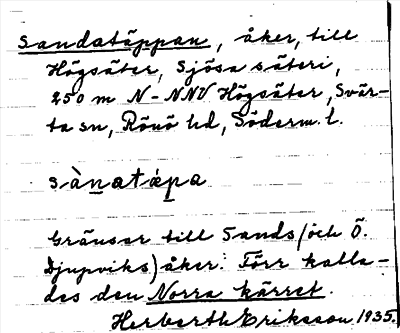 Sandatäppan, åker, till
Högsäter, Sjösa säteri,
250 m N-NNV Högsäter, Svär-
ta sn, Rönö hd, Söderm. l.
sànatápa
Gränsar till Sands (och Ö.
Djupviks) åker. Förr kalla-
des den Norra kärret.
Herberth Eriksson 1935.